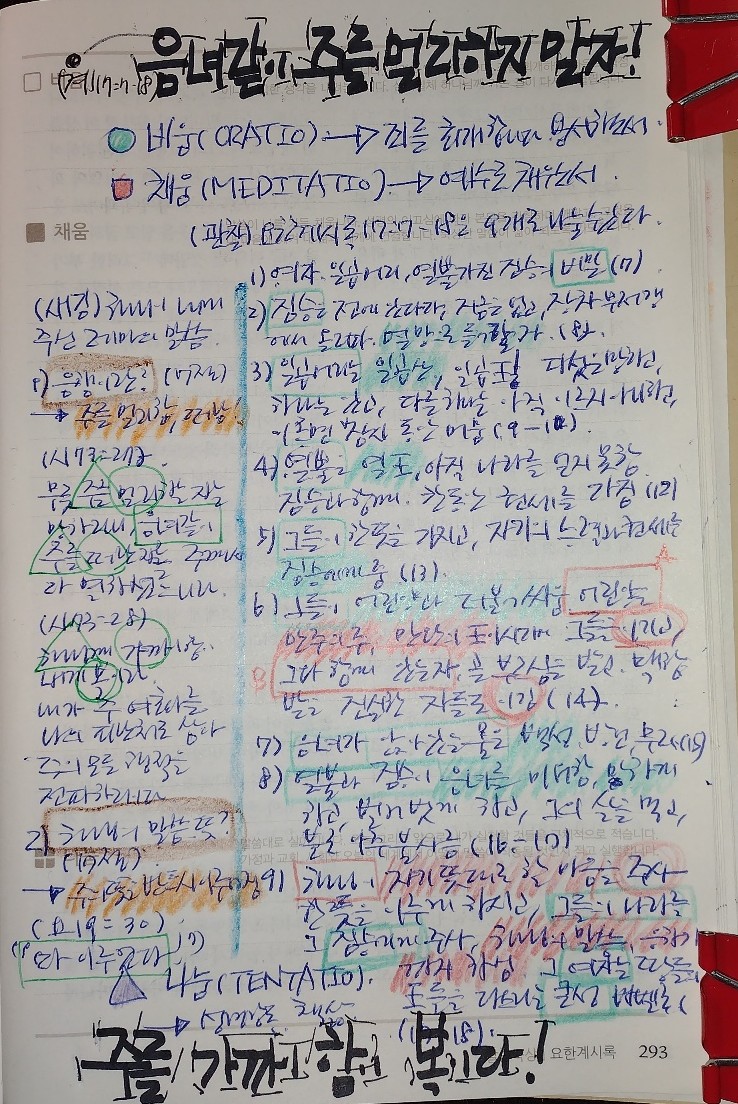 음녀같이 주를 멀리하지 말자!
(계 17=7-18)
비움(ORATIO) → 죄를 회개합니다 용서하소서.
채움(MEDITATIO) → 예수로 채우소서.
채움
(관찰) 요한계시록 17:7-18은 9개로 나눌 수 있다.
1) 여자, 일곱머리, 열뿔가진 짐승의 비밀 (7)
2) 짐승은 전에 있다가, 지금은 없고, 장차 무저갱
에서 올라와 멸망으로 들어갈 자 (8).
3) 일곱머리는 일곱산, 일곱왕 다섯은 망하고,
하나는 있고, 다른 하나는 아직 이르지 아니하고,
이르면 잠시 동안 머뭄 (9-11)
4) 열뿔은 열왕, 아직 나라를 얻지 못함
짐승과 함께 한동안 권세를 가짐 (12)
5) 그들이 한뜻을 가지고, 자기의 능력과 권세를
짐승에게 줌 (13).
6) 그들이 어린양과 더불어 싸움 어린양은
만주의 주, 만왕의 왕이시매 그들을 이기고,
그와 함께 있는자, 곧 부르심을 받고 택함
받은 진실한 자들도 이김 (14).
7) 음녀가 앉아있는 물은 백성, 방언, 무리 (15)
8) 열뿔과 짐승이 음녀를 미워함, 망하게
하고, 벌거벗게 하고, 그의 살을 먹고,
불로 아주 불사름 (16. 17)
9) 하나님이 자기 뜻대로 할 마음을 주사
한 뜻을 이루게 하시고, 그들의 나라를
그 짐승에게 주사, 하나님 말씀 응하기
까지 하심 그 여자는 땅의
왕들을 다스리는 큰성 바벨론
(새김) 하나님이 내게
주신 레마의 말씀.
1) 음행이란? (17절)
→ 주를 멀리함, 떠남!
(시73=27)
무릇 주를 멀리하는 자는
망하리니 음녀같이
주를 떠난 자를 주께서
다 멸하셨으니라.
(시73=28)
하나님께 가까이함이
내게 복이라
내가 주 여호와를
나의 피난처로 삼아
주의 모든 행적을
전파하리이다
2) 하나님의 말씀, 뜻?
(17절)
→ 주의 뜻은 반드시 이루어짐
(요19=30)
"다 이루었다"
나눔(TENTATIO).
→ 십자가
주를 가까이 함이 복이다!
요한계시록 293